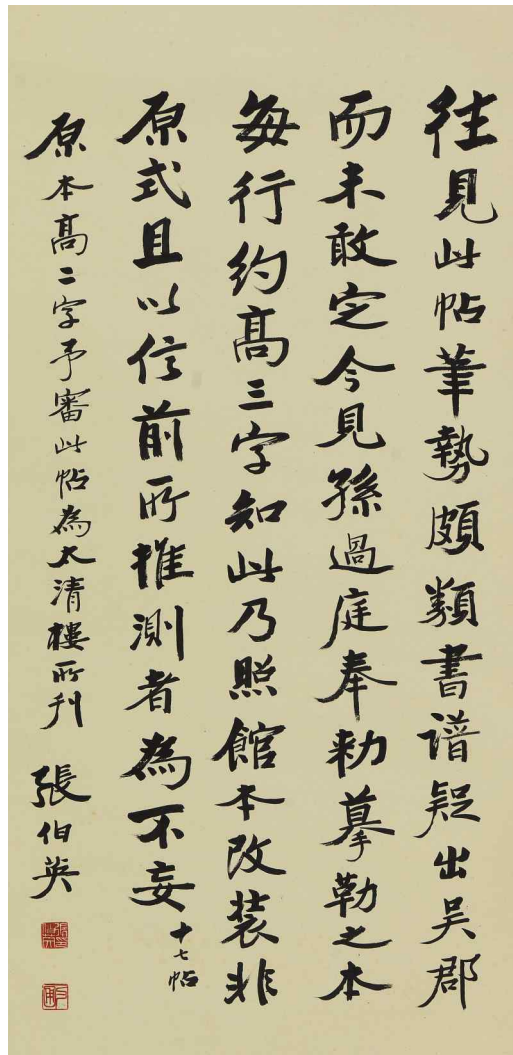 往見此帖筆勢頗類書譜疑出吳郡
而未敢定今見孫過庭奉勑摹勒之本
每行約高三字知此乃照館本改裝非
原式且以信前所推測者為不妄
十七帖
原本高二字予審此帖為太清樓所刊
張伯英